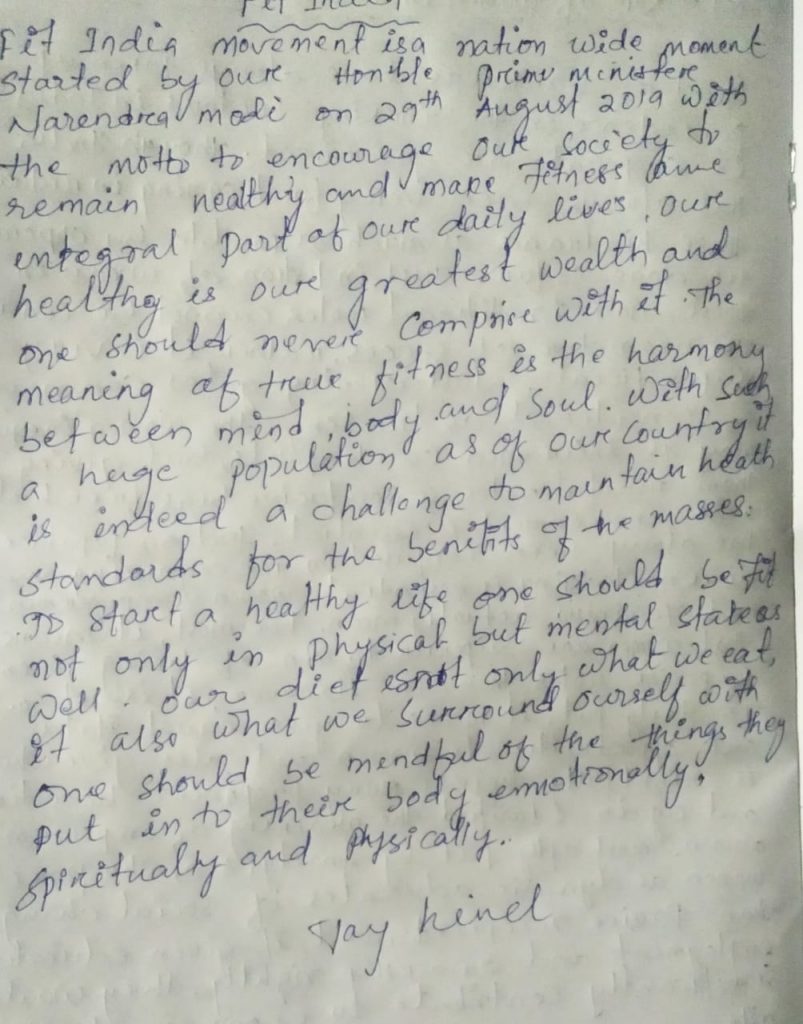 Fit India
Fit India movement is a nation wide moment
started by oure Hon'ble prime ministere
Narendrea modi on 29th August 2019 with
the motto to encourage oure society to
remain healthy and make fitness
integral part of oure daily lives. oure
healthy is oure greatest wealth and
one should nevere comprise with it. The
meaning of true fitness is the harmony
between mind, body and soul. with such
a huge population as of oure country it
is indeed a challenge to maintain heath
standards for the benifits of the masses.
To start a healthy life one should be fit
not only in physical but mental state as
well. our diet isnot only what we eat,
it also what we surround ourself with
one should be mindful of the things they
put in to theire body emotionally,
spiritually and physically.
Jay hind